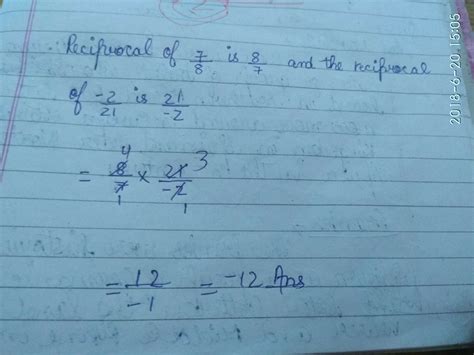 2
Reciprocal of 7/8 is 8/7 and the reciprocal
of -2/21 is 21/-2
= 8/7 × 21/-2
4 3
1 1
= 12/-1 = -12 Ans
2018-6-20 15:05